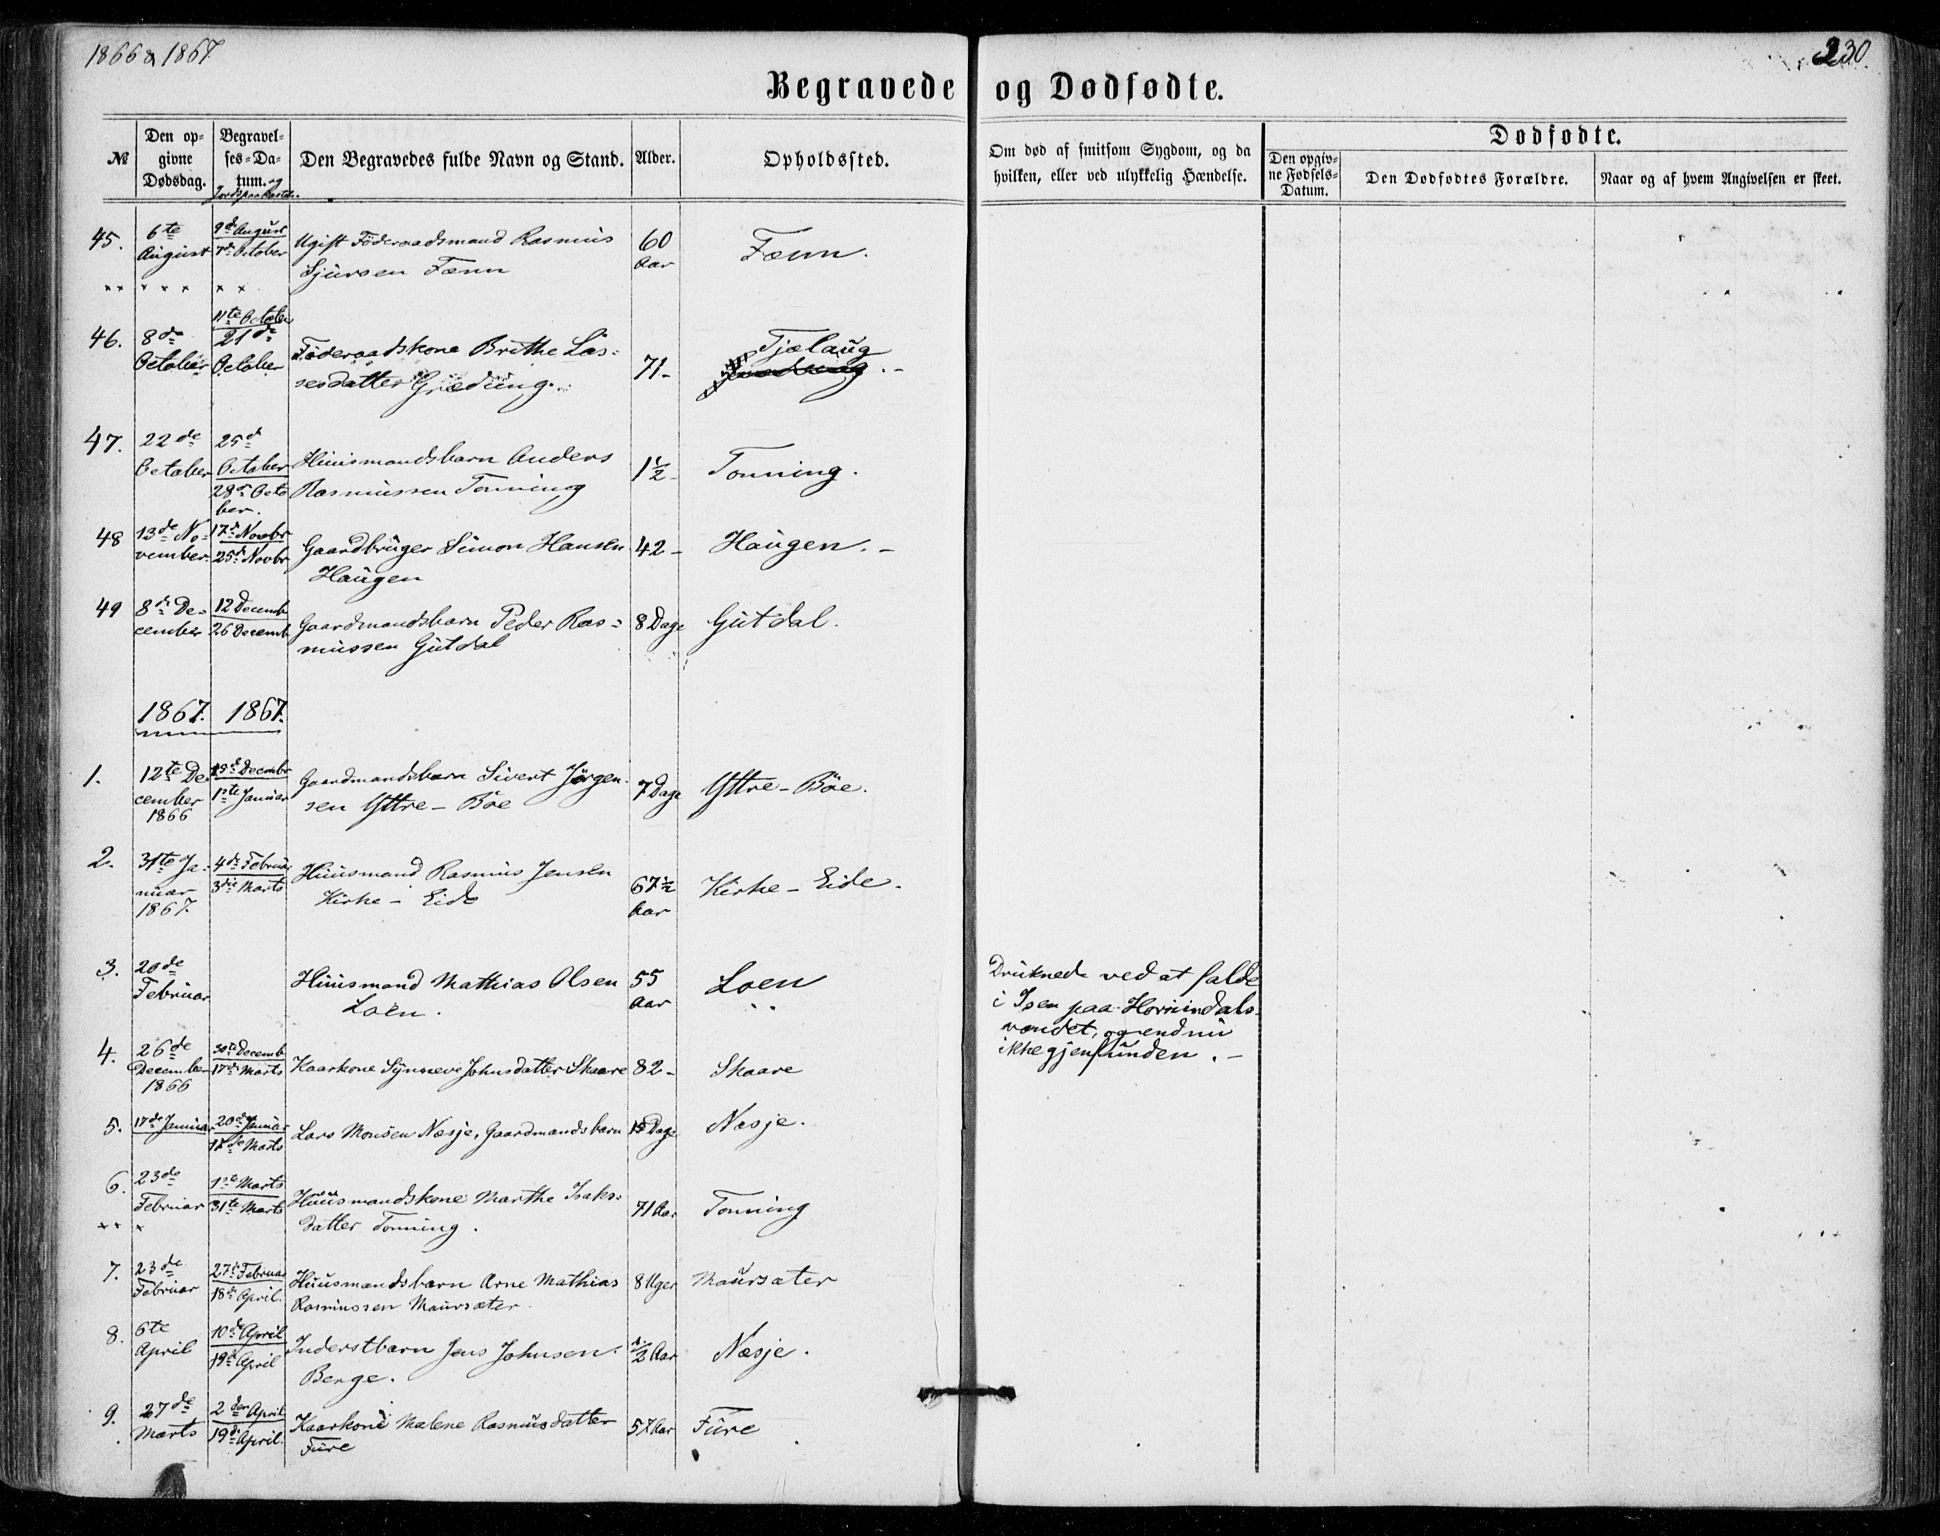 1866 & 1867
230.
Begravede og Dødfødte.
№
Den op=
givne
Dødsdag.
Begravel=
ses=Da=
tum. og
Jordspaakastelse.
Den Begravedes fulde Navn og Stand.
Alder.
Opholdssted.
Om død af smitsom Sygdom, og da
hvilken, eller ved ulykkelig Hændelse.
Dødfødte.
Den opgiv=
ne Fødsels=
Datum.
Den Dødfødtes Forældre.
Naar og af hvem Angivelsen er skeet.
45.
6te
August
9de August
7de October
Ugift Föderaadsmand Rasmus
Sjursen Fænn
60
Aar
Fænn.
46.
8de
October
11te October
21de
October
Föderaadskone Brithe Las=
sesdatter Græding.
71-
Tjælaug
47.
22de
October
25d
October
28de Octo
ber.
Huusmandsbarn Anders
Rasmussen Tonning
1½-
Tonning.
48
13de No-
vember.
17d Novbr
25d Novbr
Gaardbruger Simon Hansen
Haugen
42-
Haugen.-
49
8de De-
cember
12 Decemb
26 Decemb
Gaardmandsbarn Peder Ras=
mussen Gutdal
8 Dage
Gutdal.
1867. 1867.
1.
12te De
cember
1866
15d Decembr
1ste Januar
Gaardmandsbarn Sivert Jørgen
sen Yttre-Böe
7 Dage
Yttre-Böe.
2.
31te Ja-
nuar
1867.
4de Februar
3die Marts
Huusmand Rasmus Jensen
Kirke-Eide
67½
Aar
Kirke-Eide.
3.
20de
Februar
Huusmand Mathias Olsen
Loen.
55
Aar
Loen
Druknede ved at falde
i Isen paa Hornindals-
vandet, og endnu
ikke gjenfunden.-
4.
26de
December
1866
30te Decemb
17de Marts
Kaarkone Synneve Johnsdatter Skaare
82-
Skaare
5.
17de Januar
20de Januar
17de Marts
Lars Monsen Næsje, Gaardmandsbarn
15 Dage
Næsje.
6.
23de
Februar
1ste Marts
31te Marts
Huusmandskone Marthe Isaks-
datter Tonning.
71 Aar
Tonning
7.
23de
Februar
27de Februar
18de April.
Huusmandsbarn Arne Mathias
Rasmussen Maursæter.
8 Uger
Maursæter
8.
6te
April
10de April
19d April
Inderstbarn Jens Johnsen
Berge.
½ Aar
Næsje.
9.
27de
Marts
2den April
19de April.
Kaarkone Malene Rasmusdatter
Fure
57 Aar
Fure